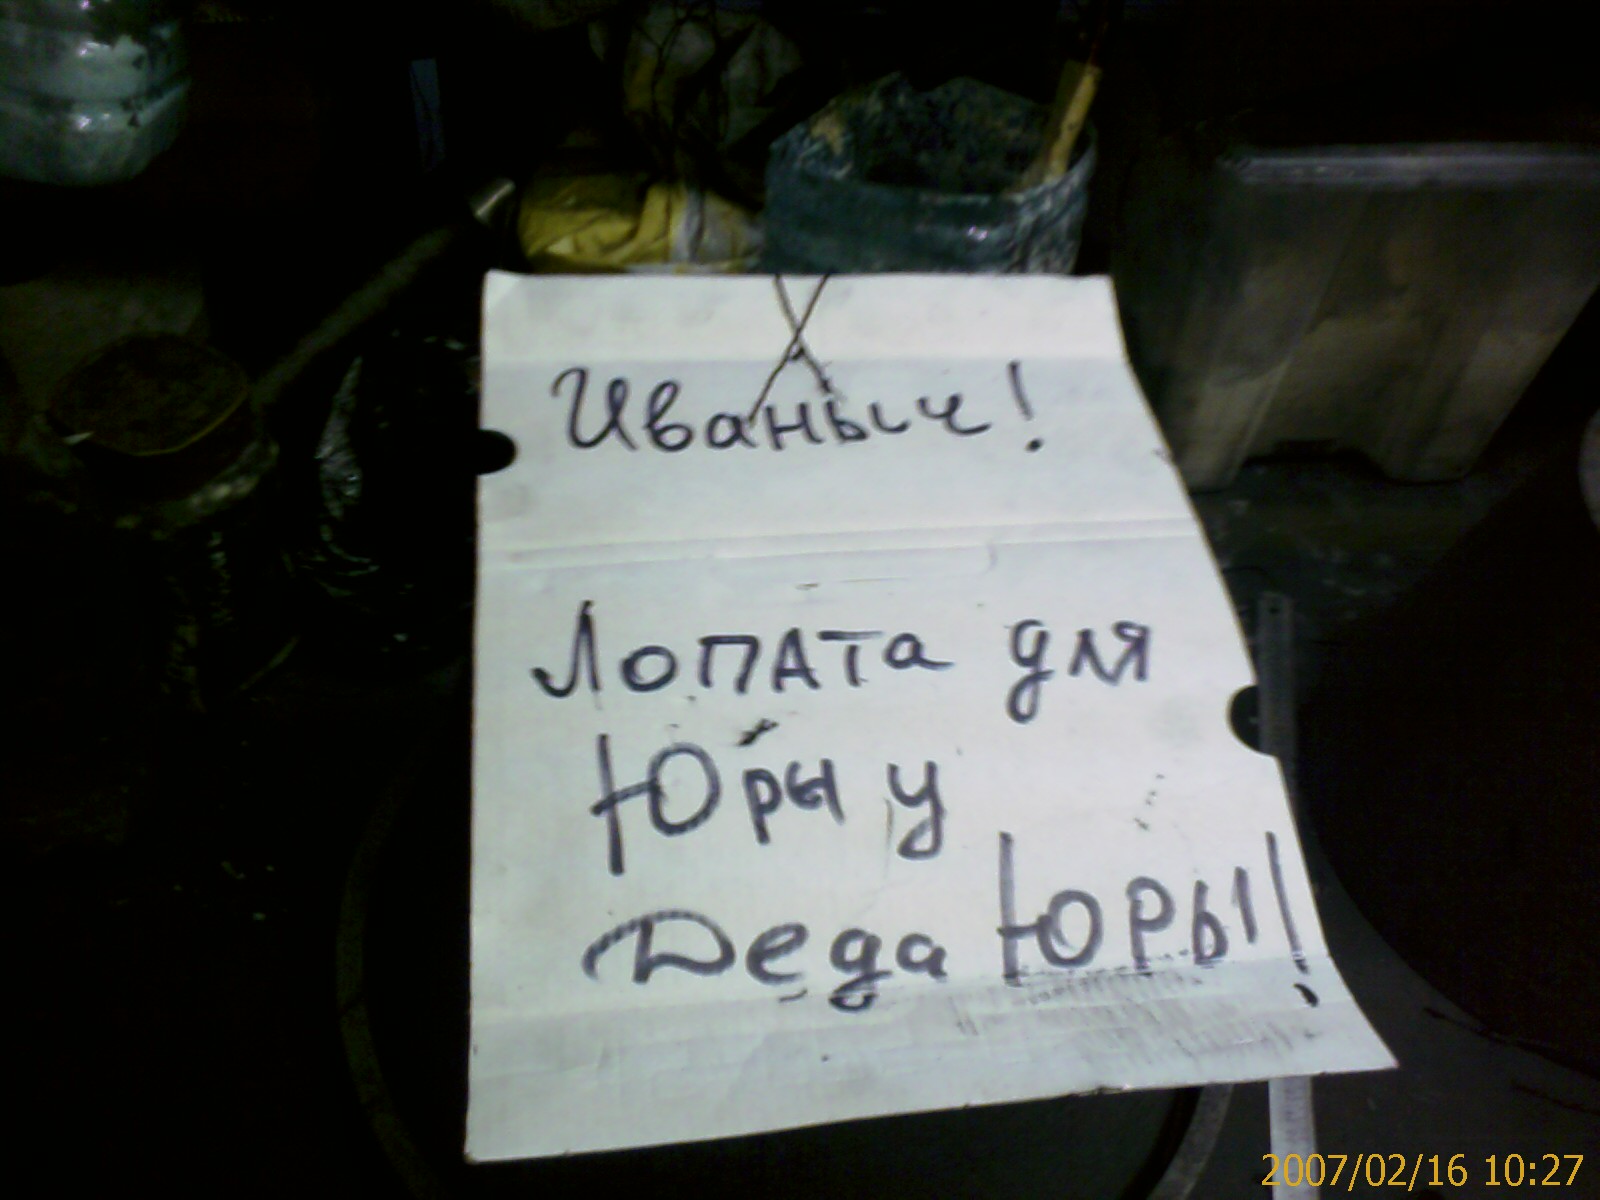 Иваныч!
Лопата для
Юры у
Деда Юры!
2007/02/16 10:27